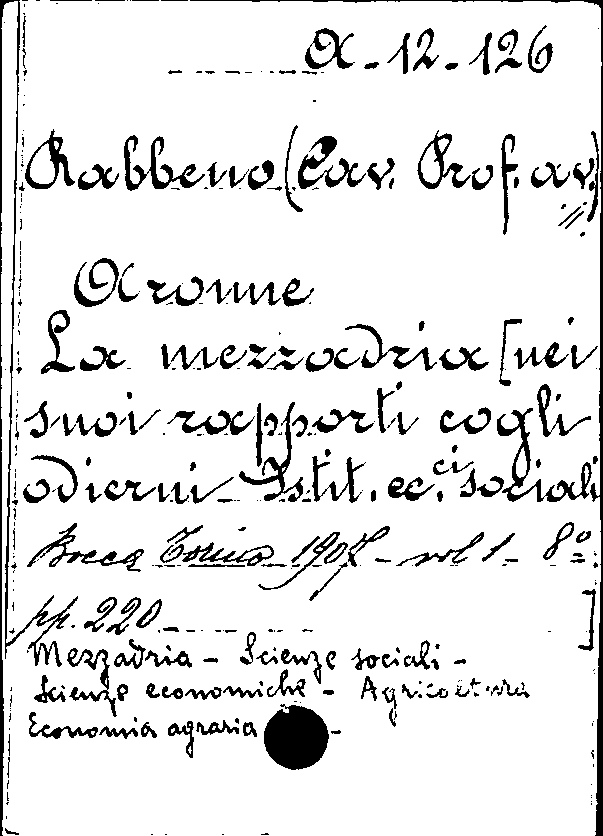 A-12-126
Rabbeno (Cav. Prof. av.)
Aronne
La mezzadria [nei
suoi rapporti cogli
odierni Istit. ec.ci sociali
Bocca Torino 1907 - vol 1 - 8º
pp. 220 ]
Mezzadria - Scienze sociali -
Scienze economiche - Agricoltura
Economia agraria -